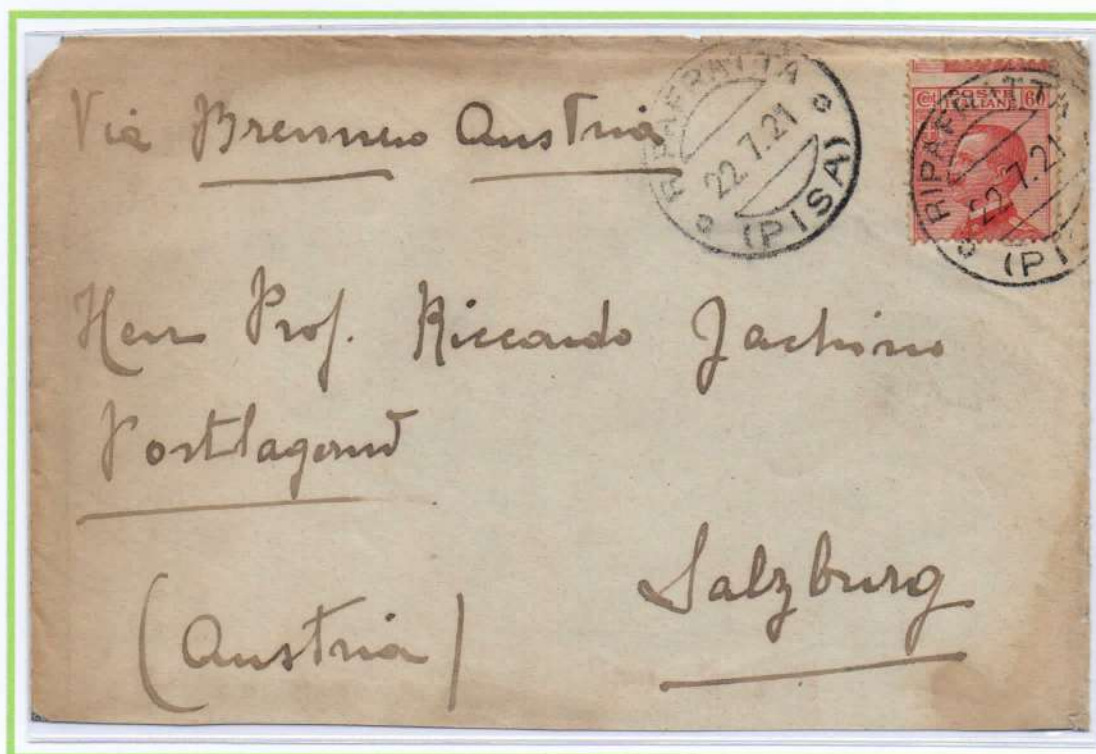 Via Brennero Austria
RIPAFRATTA
22.7.21
(PISA)
POSTE
ITALIANE
60
RIPAFRATTA
22.7.21
(PIS
Herrn Prof. Riccardo Jachino
Postlagernd
Salzburg
(Austria)